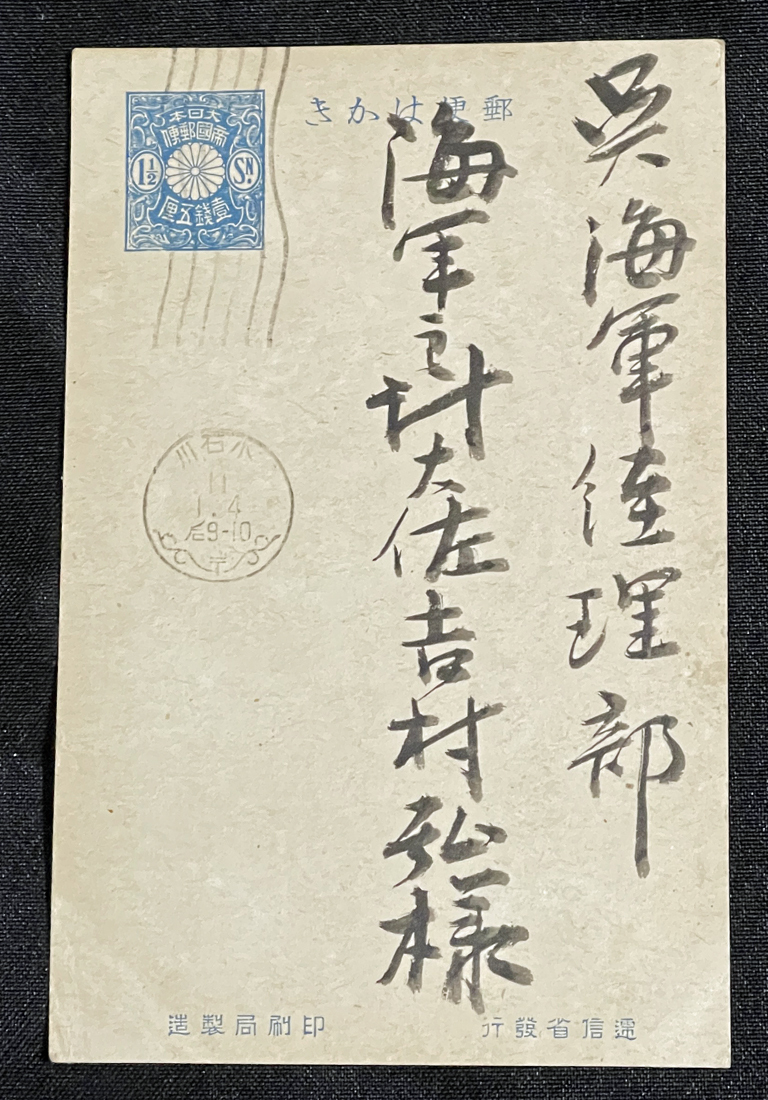 郵便はかき
大日本
帝國郵便
1½ SN.
壹錢五厘
呉海軍経理部
海軍主計大佐吉村弘様
小石川
11
1.4
后9-10
遞信省發行
印刷局製造